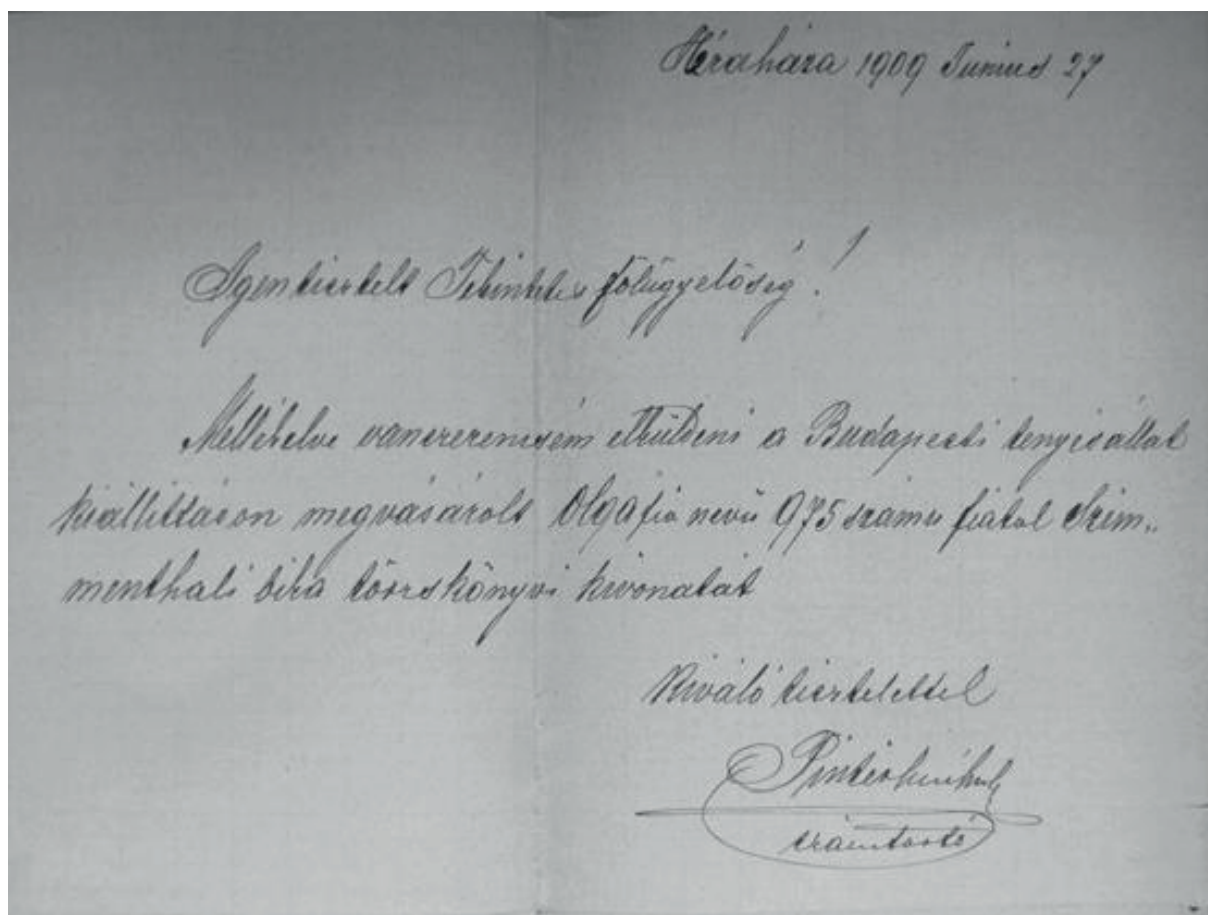 Héraháza 1909 Június 27
Igentisztelt Tekintetes főlügyelőség!
Mellékelve vanszerencsém elküldeni a Budapesti tenyészállat
kiállittáson megvásárolt Olga fia nevü 975 számu fiatal Szim„
menthali bika törzskönyvi kivonatát
Kiváló tisztelettel
Pintér
számtartó